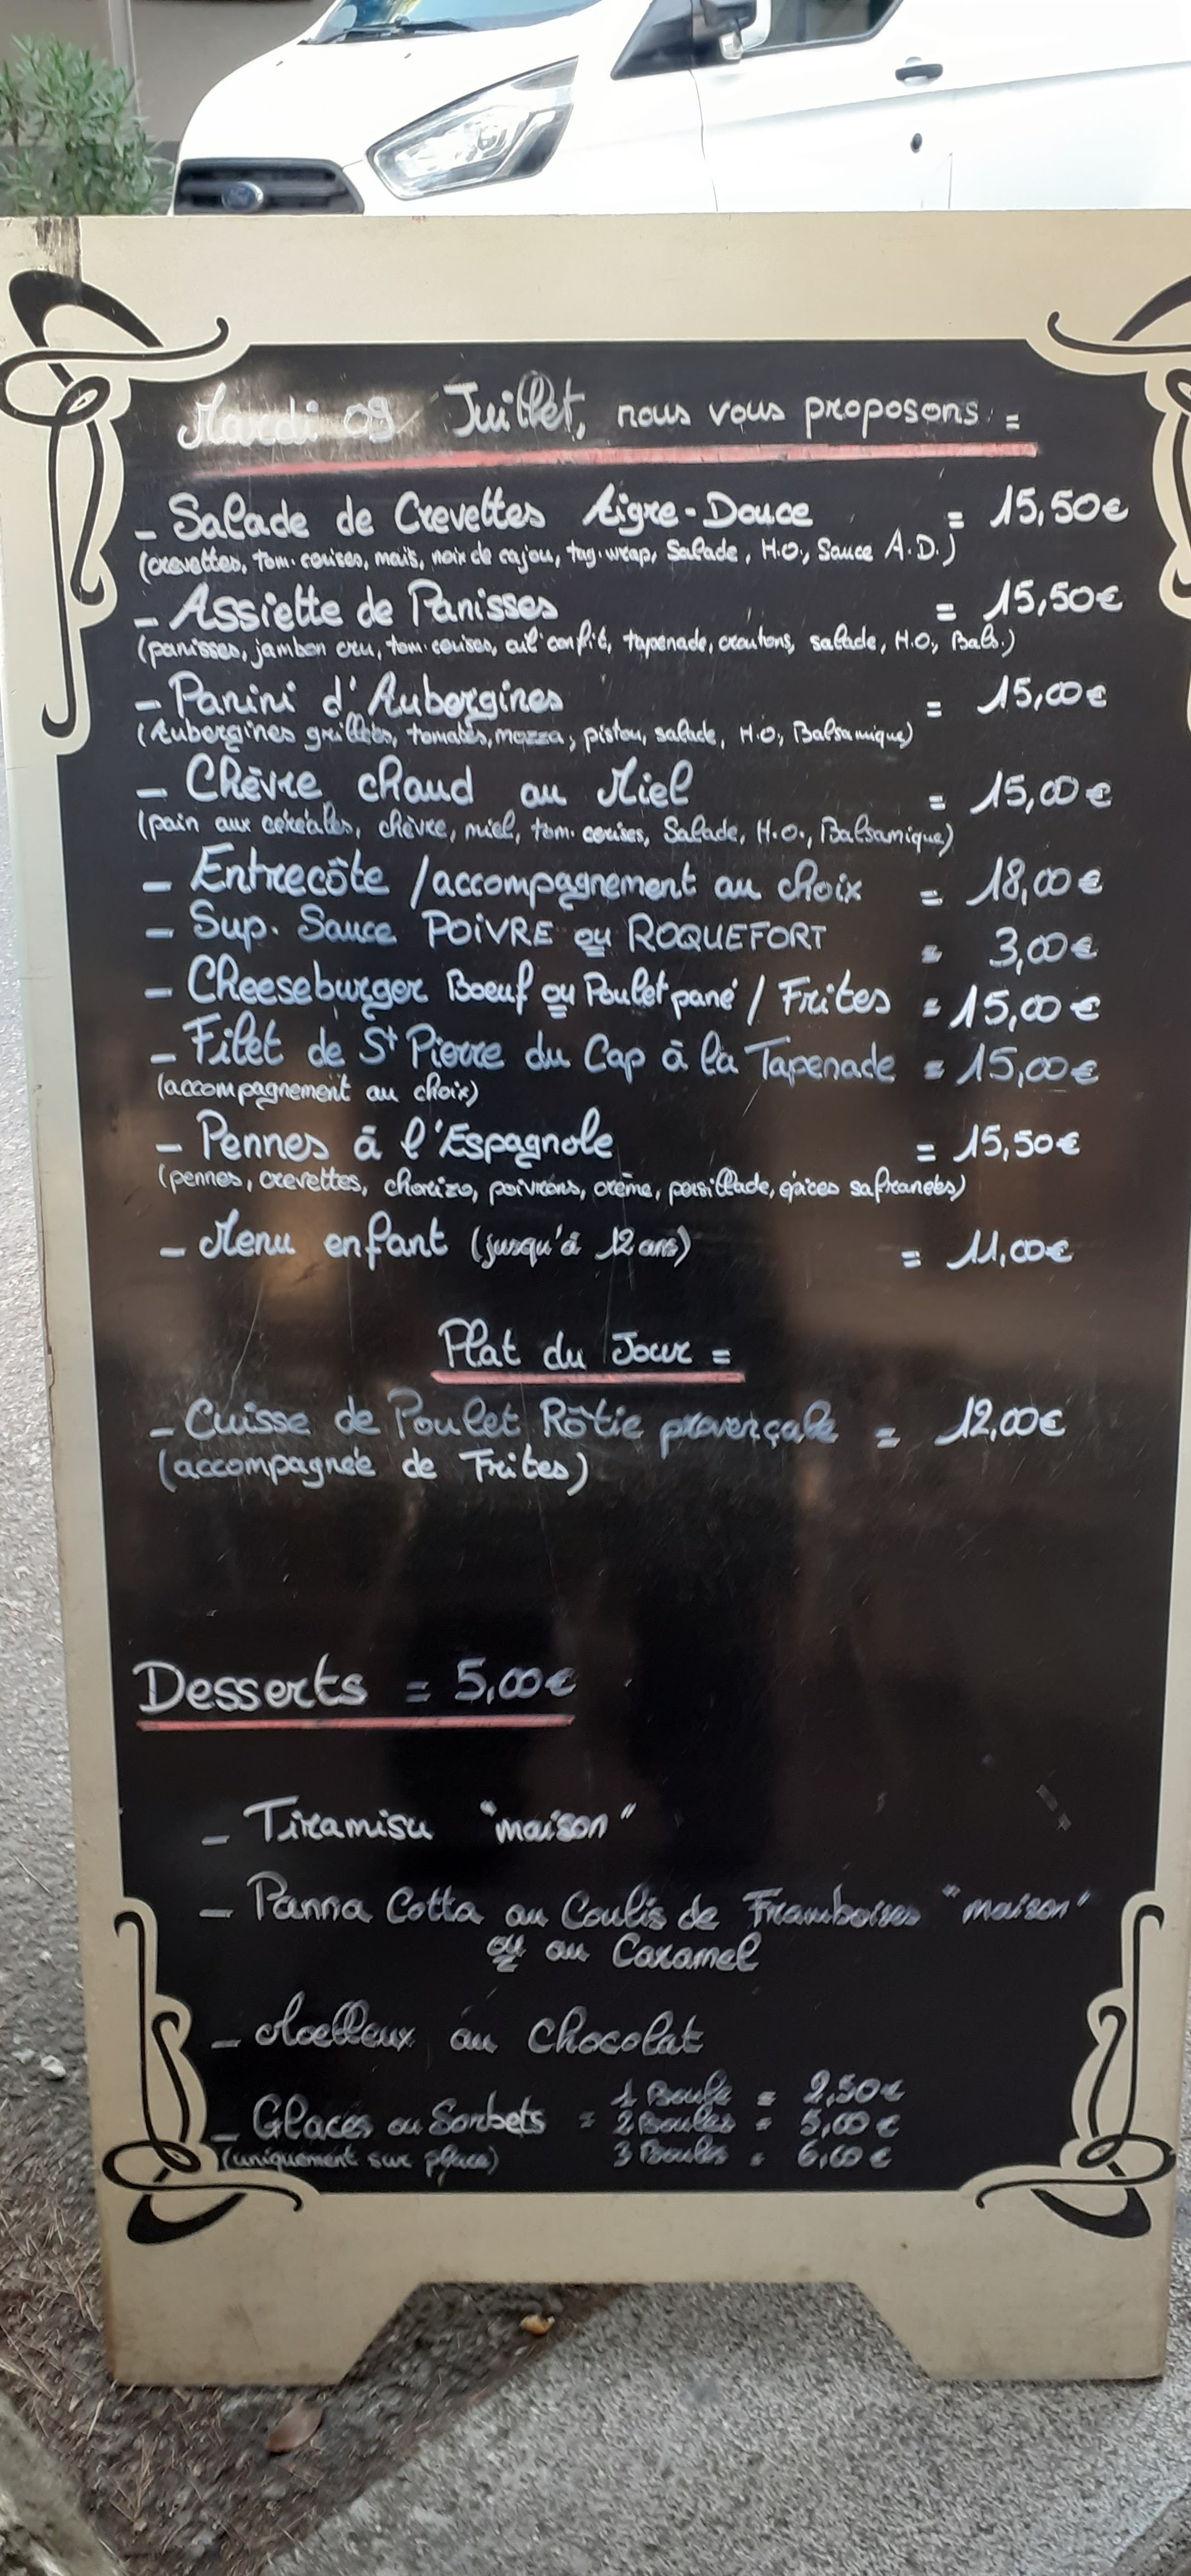 Mardi 09 Juillet, nous vous proposons :=
- Salade de Crevettes Aigre-Douce = 15,50€
(crevettes, tom. cerises, maïs, noix de cajou, tag. wrap, Salade, H.O, Sauce A.D.)
- Assiette de Panisses = 15,50€
(panisses, jambon cru, tom. cerises, ail confit, tapenade, croutons, salade, H.O, Bals.)
- Panini d'Aubergines = 15,00€
(Aubergines grillées, tomates, mozza, pistou, salade, H.O, Balsamique)
- Chèvre chaud au Miel = 15,00€
(pain aux céréales, chèvre, miel, tom. cerises, Salade, H.O., Balsamique)
- Entrecôte / accompagnement au choix = 18,00€
- Sup. Sauce POIVRE ou ROQUEFORT = 3,00€
- Cheeseburger Boeuf ou Poulet pané / Frites = 15,00€
- Filet de St Pierre du Cap à la Tapenade = 15,00€
(accompagnement au choix)
- Pennes à l'Espagnole = 15,50€
(pennes, crevettes, chorizo, poivrons, crème, persillade, épices safranées)
- Menu enfant (jusqu'à 12 ans) = 11,00€
Plat du Jour =
- Cuisse de Poulet Rôtie provençale = 12,00€
(accompagnée de Frites)
Desserts = 5,00€
- Tiramisu "maison"
- Panna Cotta au Coulis de Framboises "maison"
ou au Caramel
- Moelleux au Chocolat
1 Boule = 2,50€
- Glaces ou Sorbets = 2 Boules = 5,00€
(uniquement sur place) 3 Boules = 6,60€